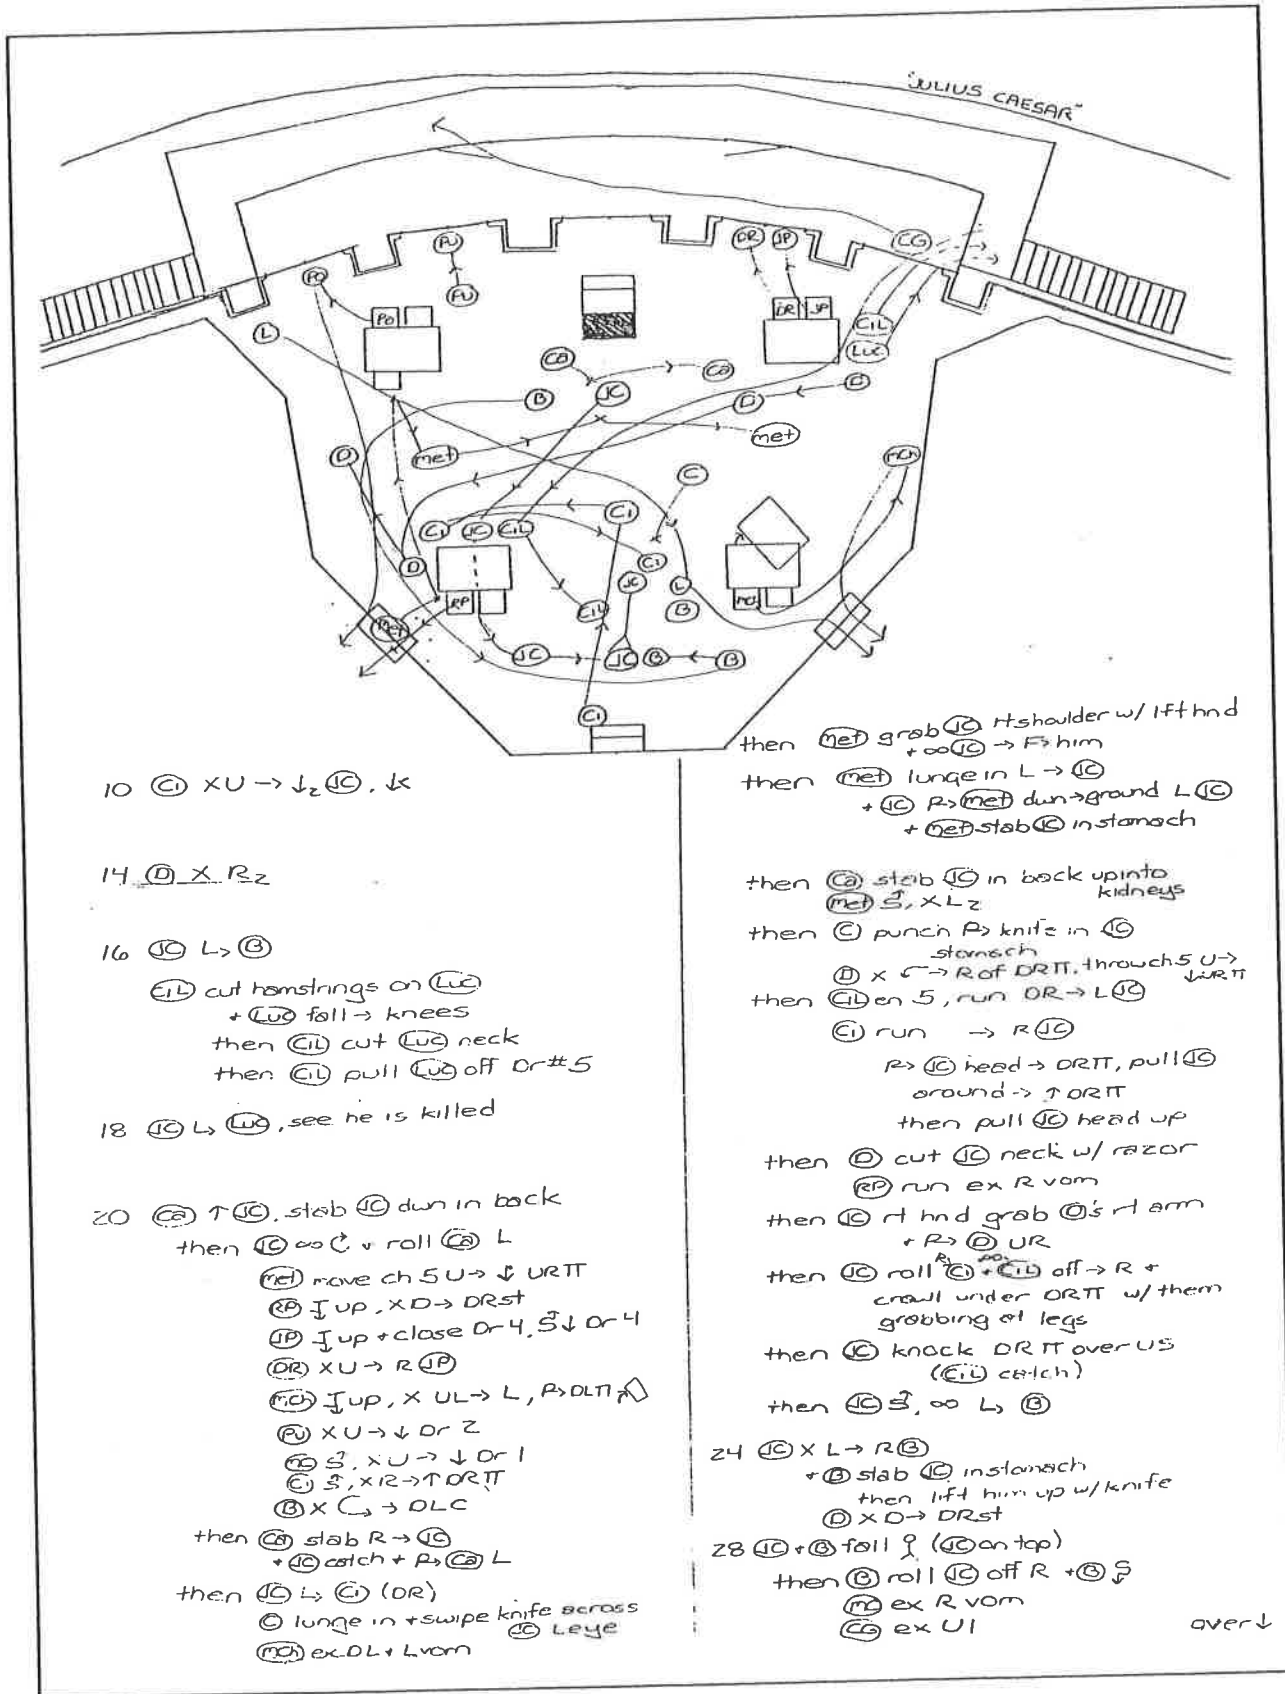 "JULIUS CAESAR"
PU
DR JP
CG
PO
PU
PO
DR JP
CiL
L
Luc
Ca
Ca
D
B
JC
D
met
met
D
mch
C
Ci JC CiL
Ci
Ci
D
JC
L
RP
CiL
B
mch
Met
JC
JC B
B
Ci
10 Ci XU → ↓2 JC, ↓K
14 D X R2
16 JC L> B
CiL cut hamstrings on Luc
+ Luc fall → knees
then CiL cut Luc neck
then CiL pull Luc off Dr #5
18 JC L> Luc, see he is killed
20 Ca ↑ JC, stab JC dwn in back
then JC ∞ + roll Ca L
met move ch 5 U → ↓ URπ
RP up, XD → DRst
JP up + close Dr 4, S ↓ Dr 4
DR XU → R JP
mch up, X UL → L, P> DLπ
PU XU → ↓ Dr 2
mc S, XU → ↓ Dr 1
Ci S, XR → ↑ DRπ
B X → DLC
then Ca stab R → JC
+ JC catch + P> Ca L
then JC L> Ci (DR)
C lunge in + swipe knife across
JC L eye
mch ex DL + L vom
then met grab JC rt shoulder w/ lft hnd
+ ∞ JC → F> him
then met lunge in L → JC
+ JC P> met dwn → ground L JC
+ met stab JC in stomach
then Ca stab JC in back up into
kidneys
met S, XL2
then C punch P> knife in JC
stomach
D X → R of DRπ, through 5 U →
↓ URπ
then CiL en 5, run DR → L JC
Ci run → R JC
P> JC head → DRπ, pull JC
around → ↑ DRπ
then pull JC head up
then D cut JC neck w/ razor
RP run ex R vom
then JC rt hnd grab D's rt arm
+ P> D UR
then JC roll Ci + CiL off → R +
crawl under DRπ w/ them
grabbing at legs
then JC knock DRπ over US
(CiL catch)
then JC S, ∞ L> B
24 JC X L → R B
+ B stab JC in stomach
then lift him up w/ knife
D XD → DRst
28 JC + B fall (JC on top)
then B roll JC off R + B S
mc ex R vom
CG ex U1
over ↓